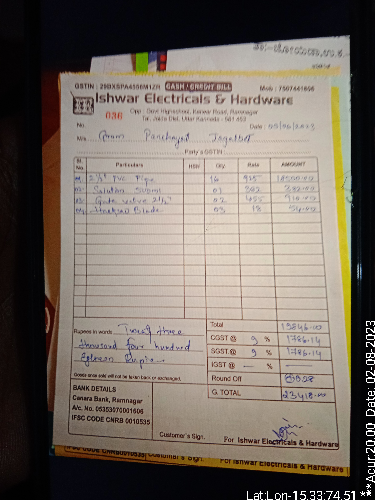 GSTIN : 29BXSPA4556M1ZR CASH / CREDIT BILL Mob : 7507441656
Ishwar Electricals & Hardware
Opp : Devi Highschool, Kanwar Road, Ramnagar
Tal. Joida Dist. Uttar Kannada - 581 453
No. 036
Date : 05/06/2023
M/s Gram Panchayat Jagalbet
Party's GSTIN :
Sl. No. Particulars HSN Qty. Rate AMOUNT
2½" PVC Pipe 16 915
Solution 500ml 01 382 382=00
Gate valve 2½" 02 455 910=00
Blade 03 18 54=00
Rupees in words Twenty three
thousand four hundred
Eighteen Rupees
Total 19846=00
CGST @ 9 % 1786.14
SGST @ 9 % 1786.14
IGST @ — % —
Round Off
G. TOTAL 23418=00
Goods once sold will not be taken back or exchanged.
BANK DETAILS
Canara Bank, Ramnagar
A/c. No. 05353070001606
IFSC CODE CNRB 0010535
Customer's Sign.
For Ishwar Electricals & Hardware
IFSC CODE CNRB0010535 Customer's Sign. For Ishwar Electricals & Hardware
Lat:Lon-15.33:74.51
***Acur:20.00 Date:02-08-2023